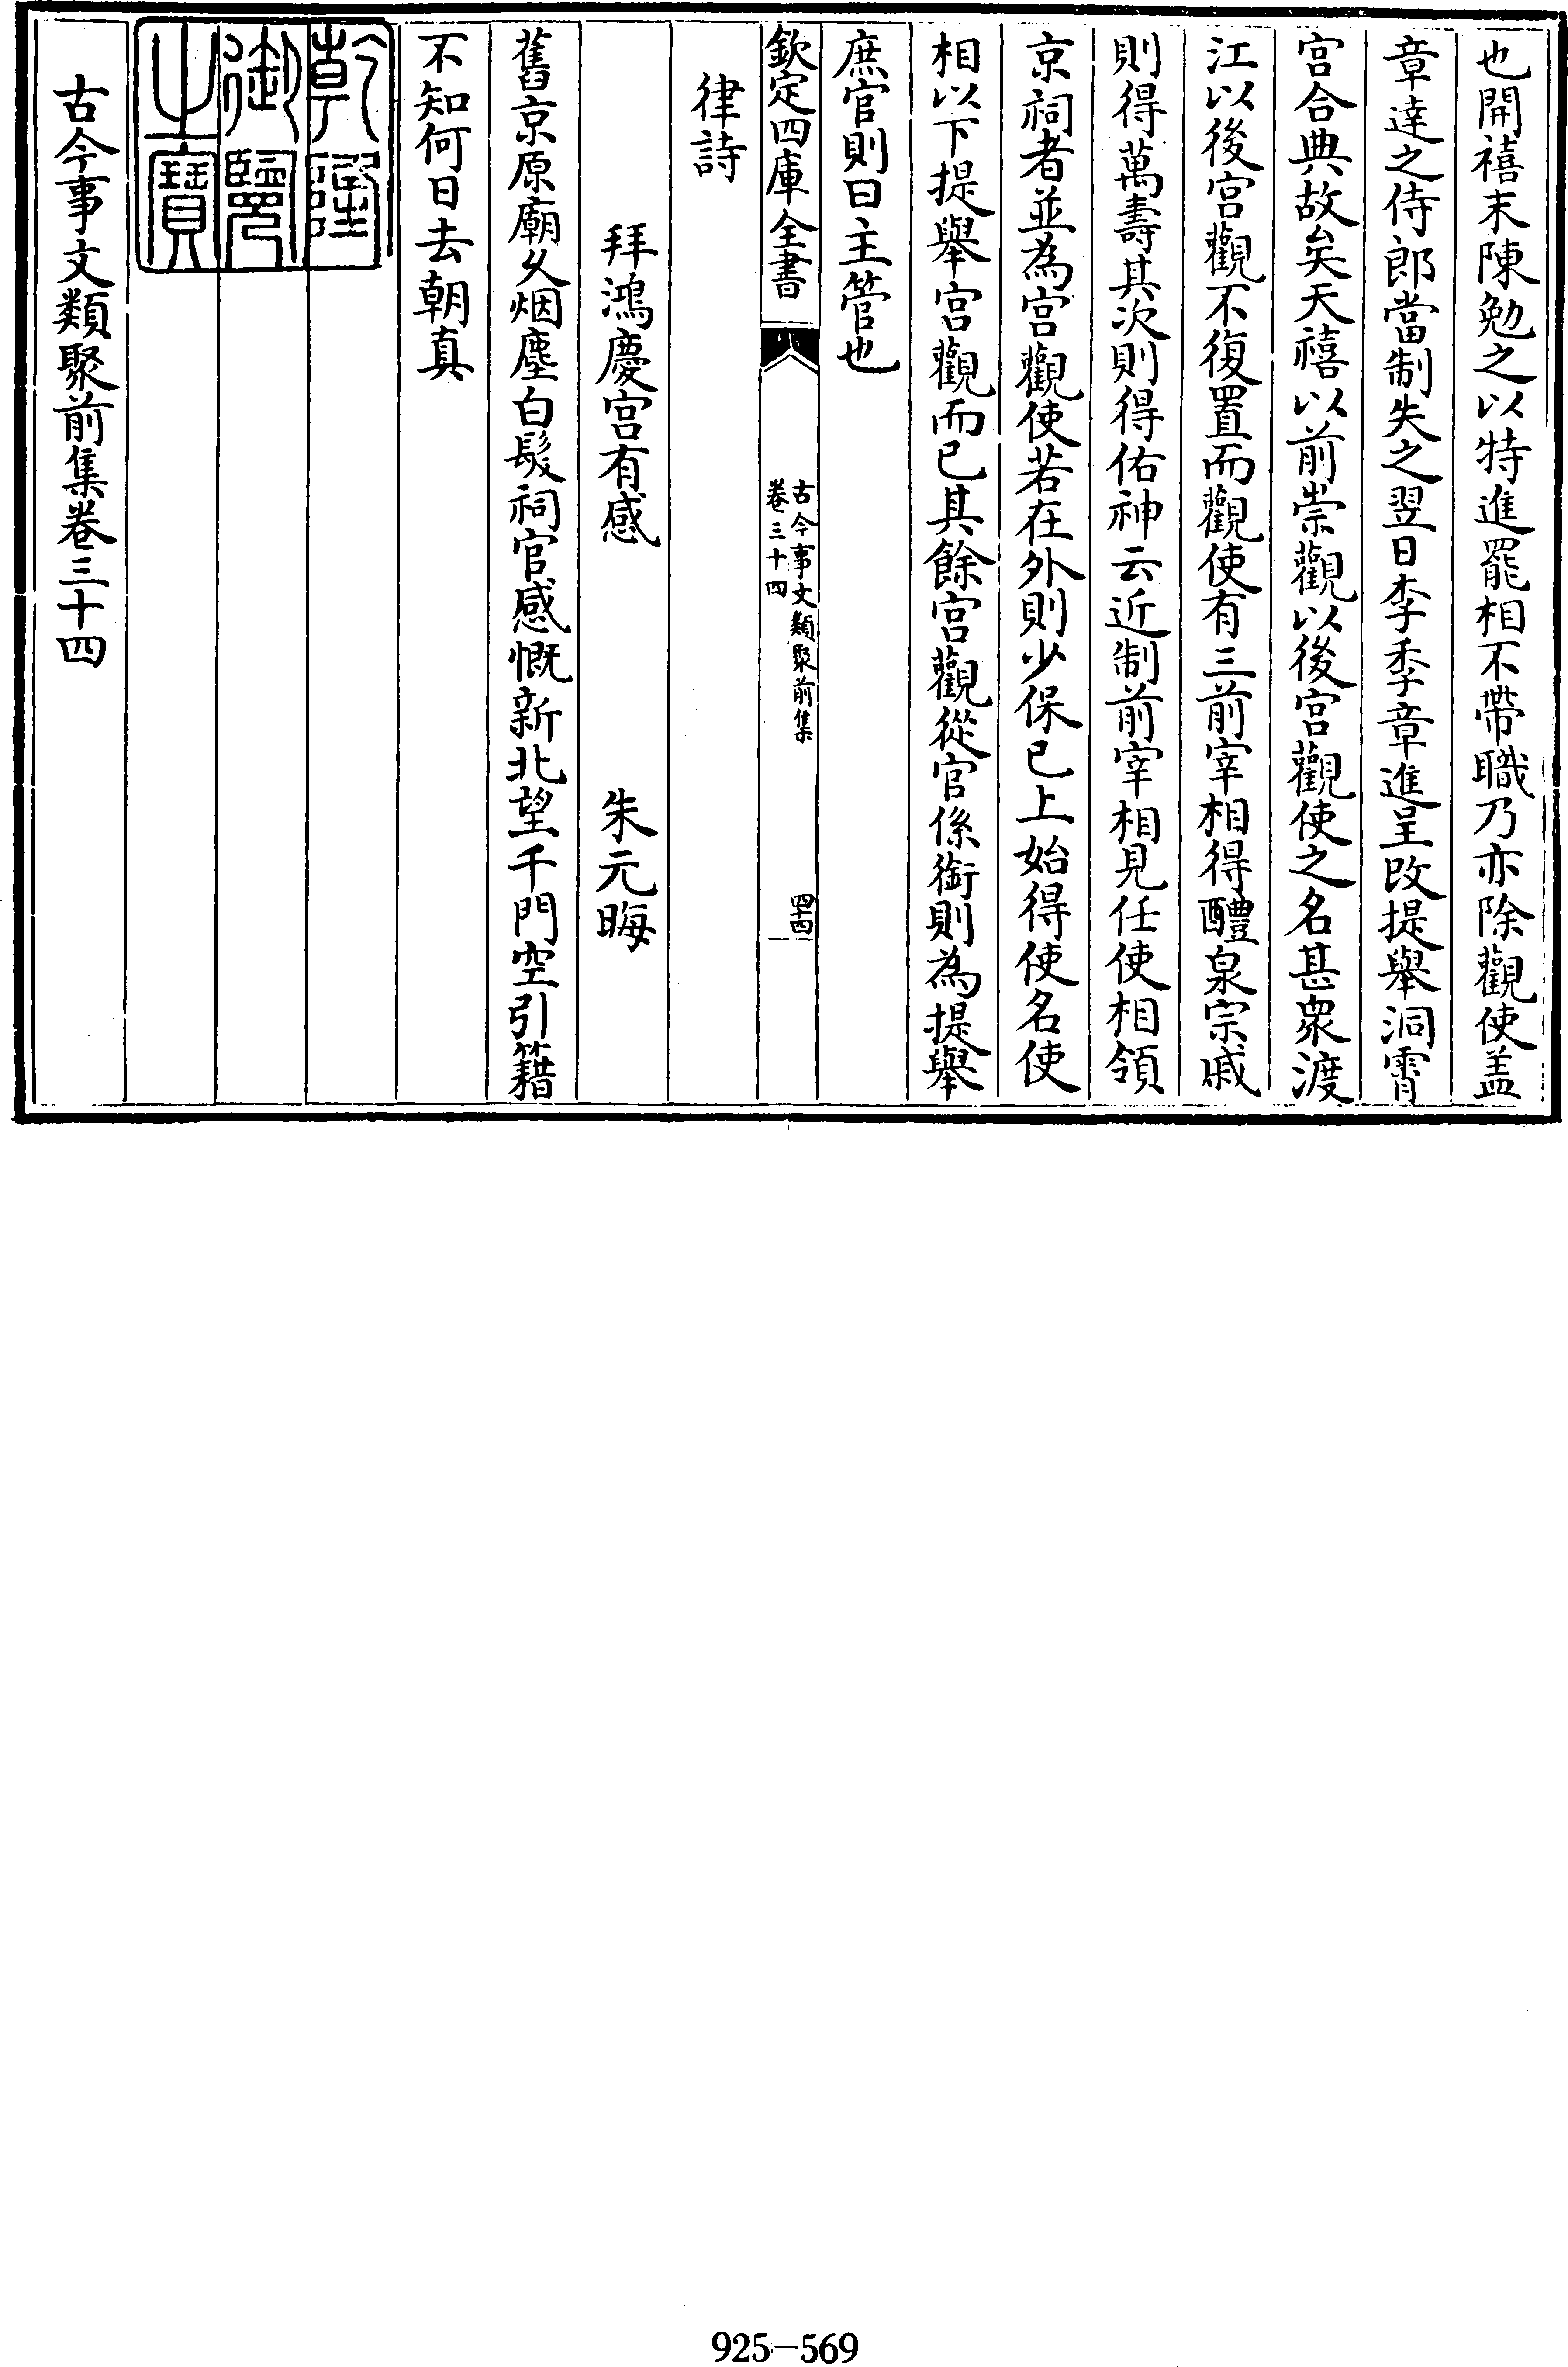 也開禧末陳勉之以特進罷相不帶職乃亦除觀使盖
章達之侍郎當制失之翌日李季章進呈改提舉洞霄
宫合典故矣天禧以前崇觀以後宫觀使之名甚衆渡
江以後宫觀不復置而觀使有三前宰相得醴泉宗戚
則得萬壽其次則得佑神云近制前宰相見任使相領
京祠者並為宫觀使若在外則少保已上始得使名使
相以下提舉宫觀而已其餘宫觀從官係銜則為提舉
庶官則曰主管也
欽定四庫全書
古今事文類聚前集
卷三十四
四十四
律詩
拜鴻慶宫有感 朱元晦
舊京原廟久烟塵白髮祠官感慨新北望千門空引籍
不知何日去朝真
乾隆
御覽
之寶
古今事文類聚前集卷三十四
925-569